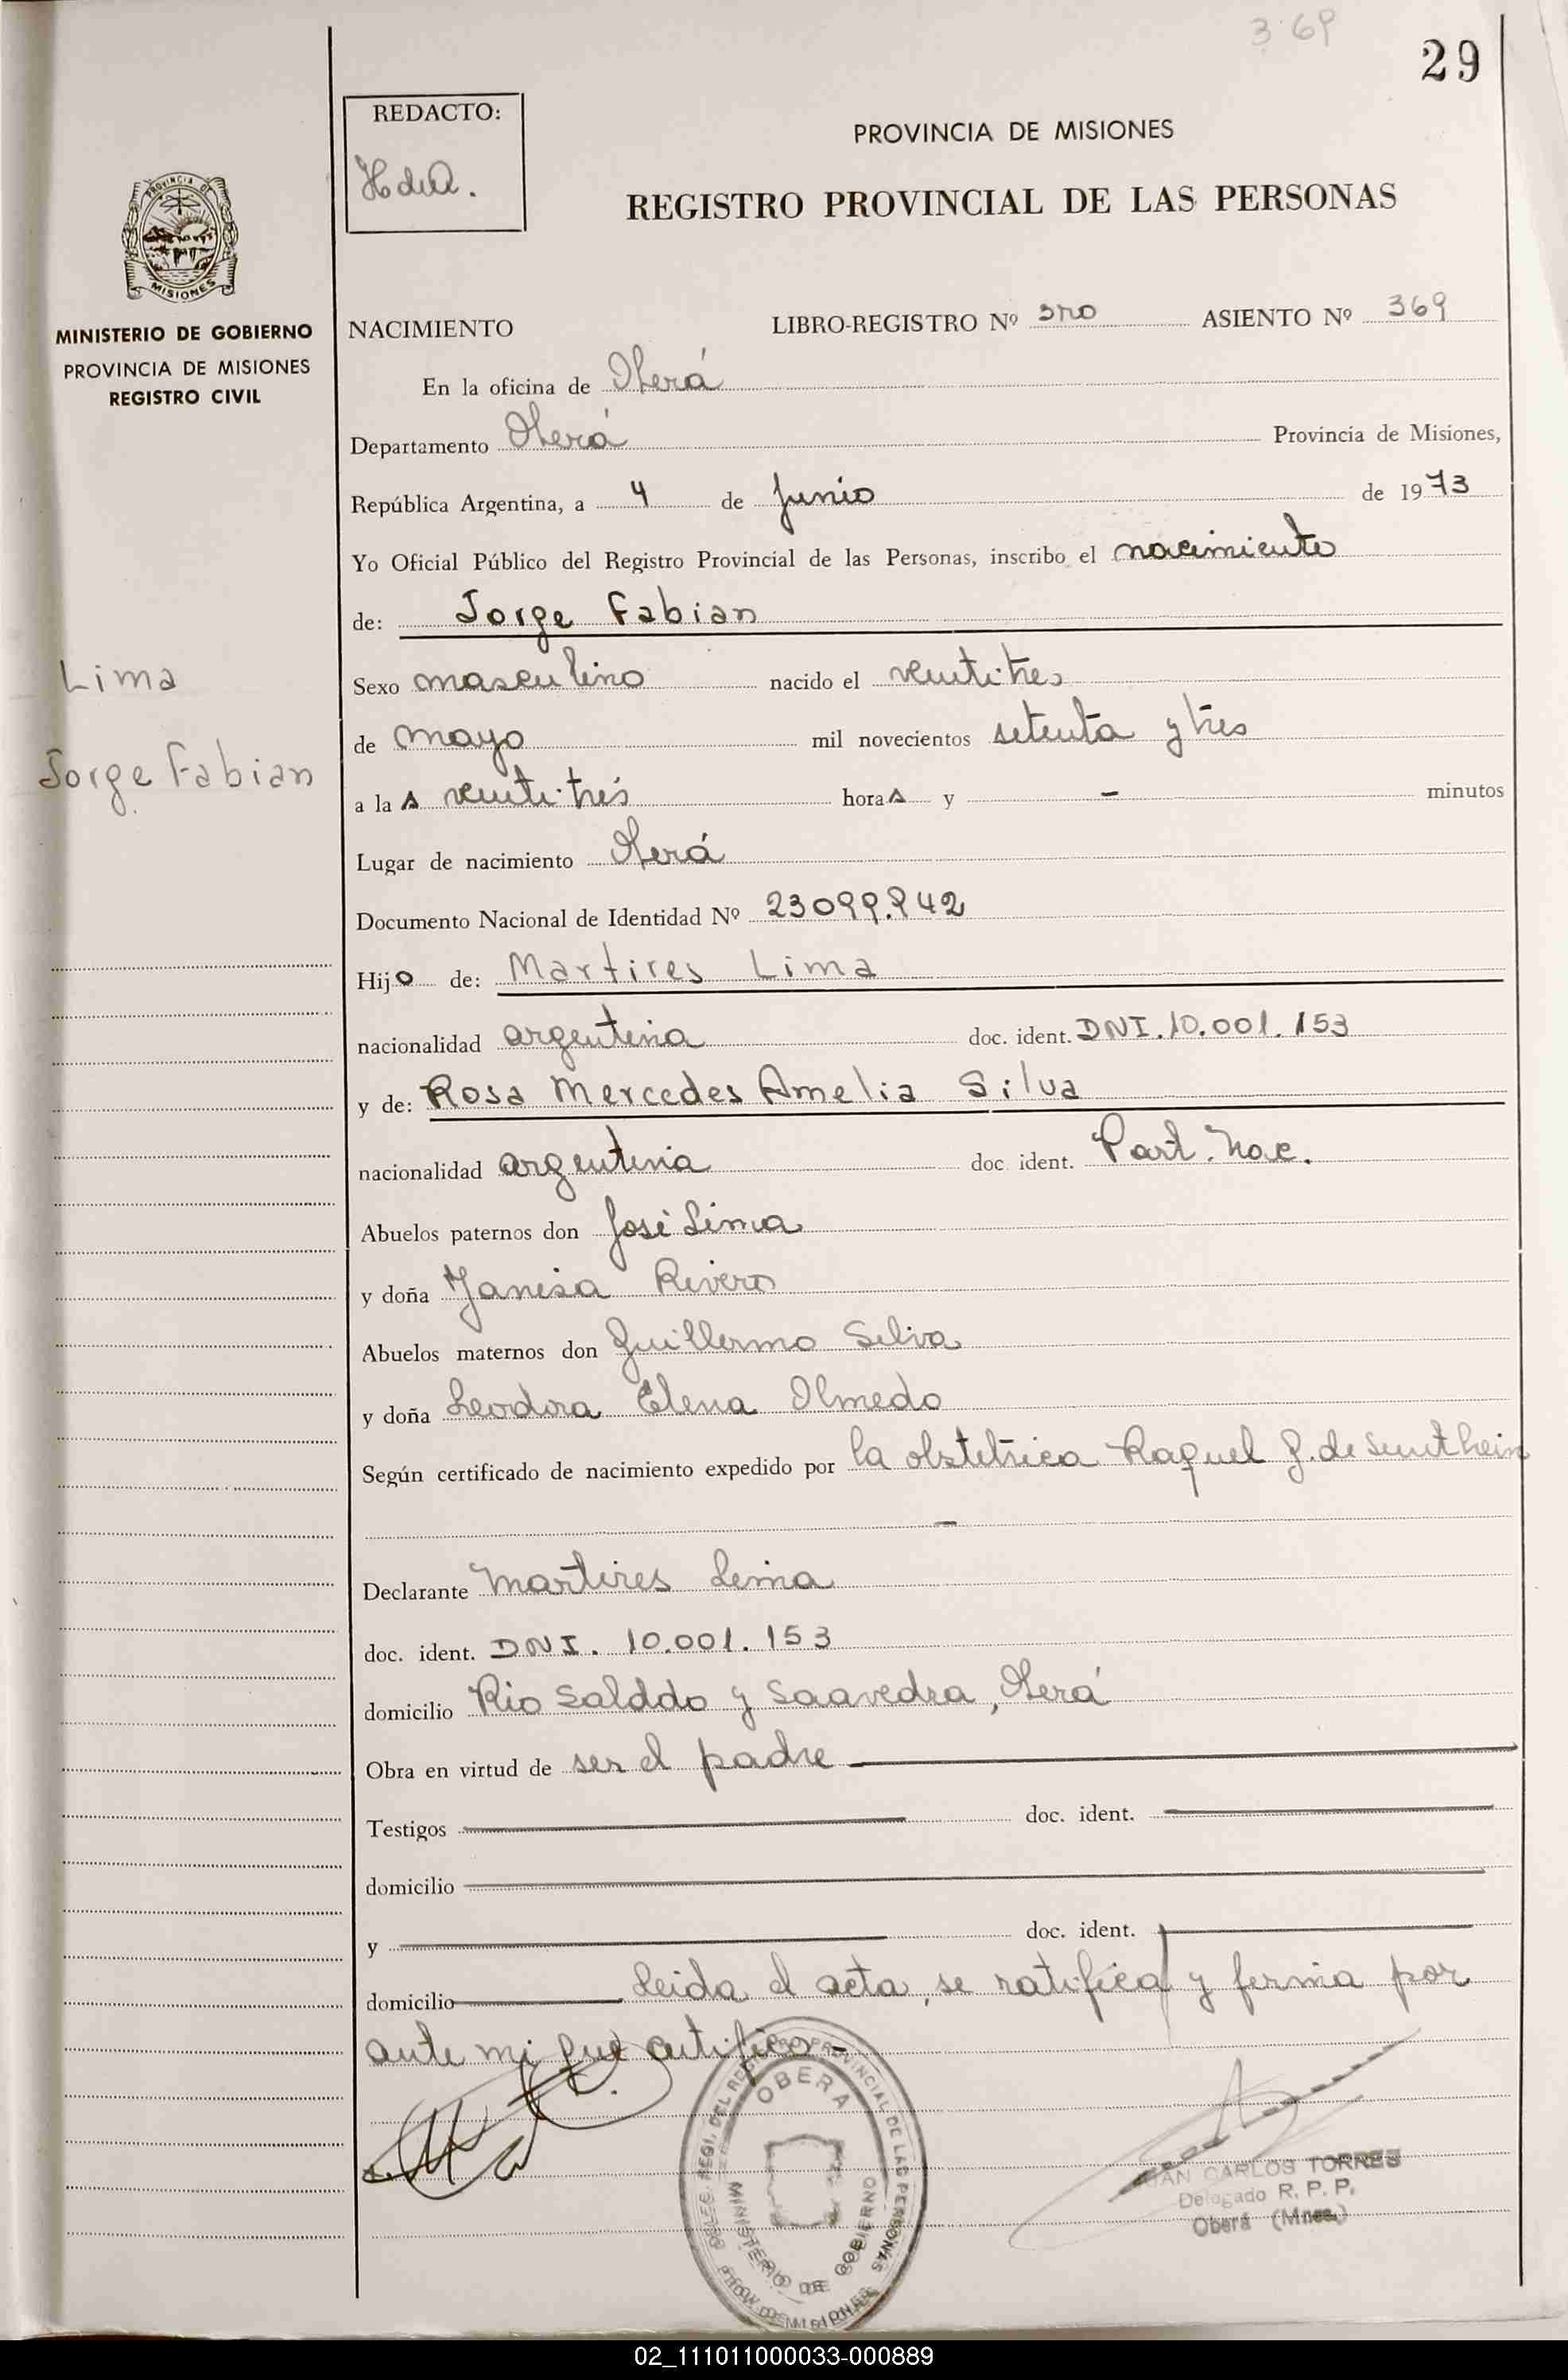 3.69
29
REDACTO:
PROVINCIA DE MISIONES
REGISTRO PROVINCIAL DE LAS PERSONAS
PROVINCIA DE
MISIONES
MINISTERIO DE GOBIERNO
PROVINCIA DE MISIONES
REGISTRO CIVIL
NACIMIENTO LIBRO-REGISTRO Nº 3ro ASIENTO Nº 369
En la oficina de Oberá
Departamento Oberá Provincia de Misiones,
República Argentina, a 4 de Junio de 1973
Yo Oficial Público del Registro Provincial de las Personas, inscribo el nacimiento
de: Jorge Fabian
Lima
Jorge Fabian
Sexo masculino nacido el veintitres
de mayo mil novecientos setenta y tres
a las veinti·trés horas y - minutos
Lugar de nacimiento Oberá
Documento Nacional de Identidad Nº
Hijo de: Martires Lima
nacionalidad argentina doc. ident. DNI. 10.001.153
y de: Rosa Mercedes Amelia Silva
nacionalidad argentina doc ident. Part. Nac.
Abuelos paternos don José Lima
y doña Rivero
Abuelos maternos don Guillermo Silva
y doña Leodora Elena Olmedo
Según certificado de nacimiento expedido por la obstetrica Raquel de
-
Declarante Martires Lima
doc. ident. DNI. 10.001.153
domicilio Rio Salddo y Saavedra, Oberá
Obra en virtud de ser el padre
Testigos doc. ident.
domicilio
y doc. ident.
domicilio Leida el acta, se ratifica y firma por
ante mi que certifico-
OBERA
MINISTERIO DE GOBIERNO
JUAN CARLOS TORRES
Delegado R. P. P.
Oberá (Mnes.)
02_111011000033-000889